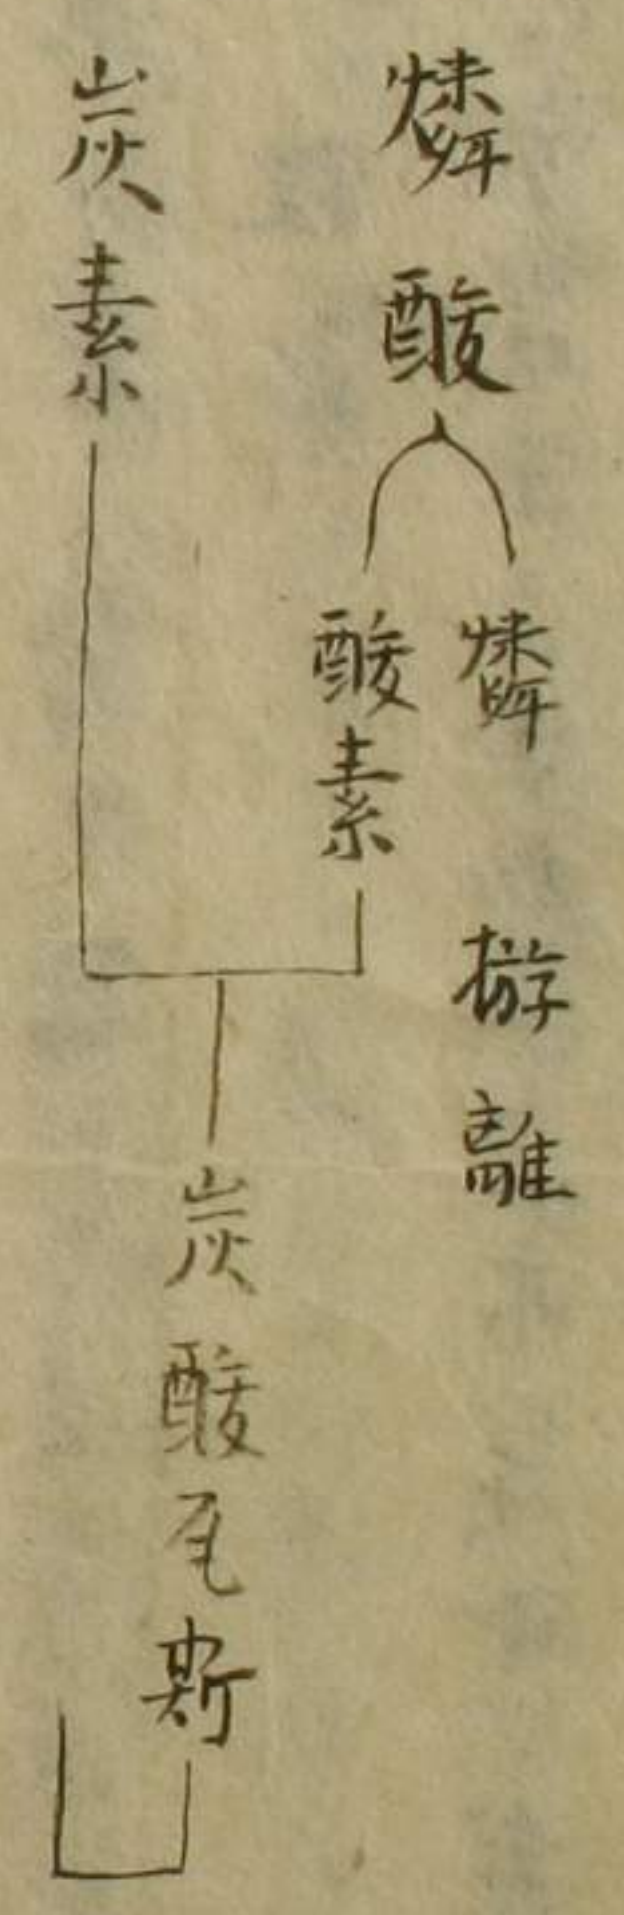 燐酸
燐
遊離
酸素
炭素
炭酸瓦斯